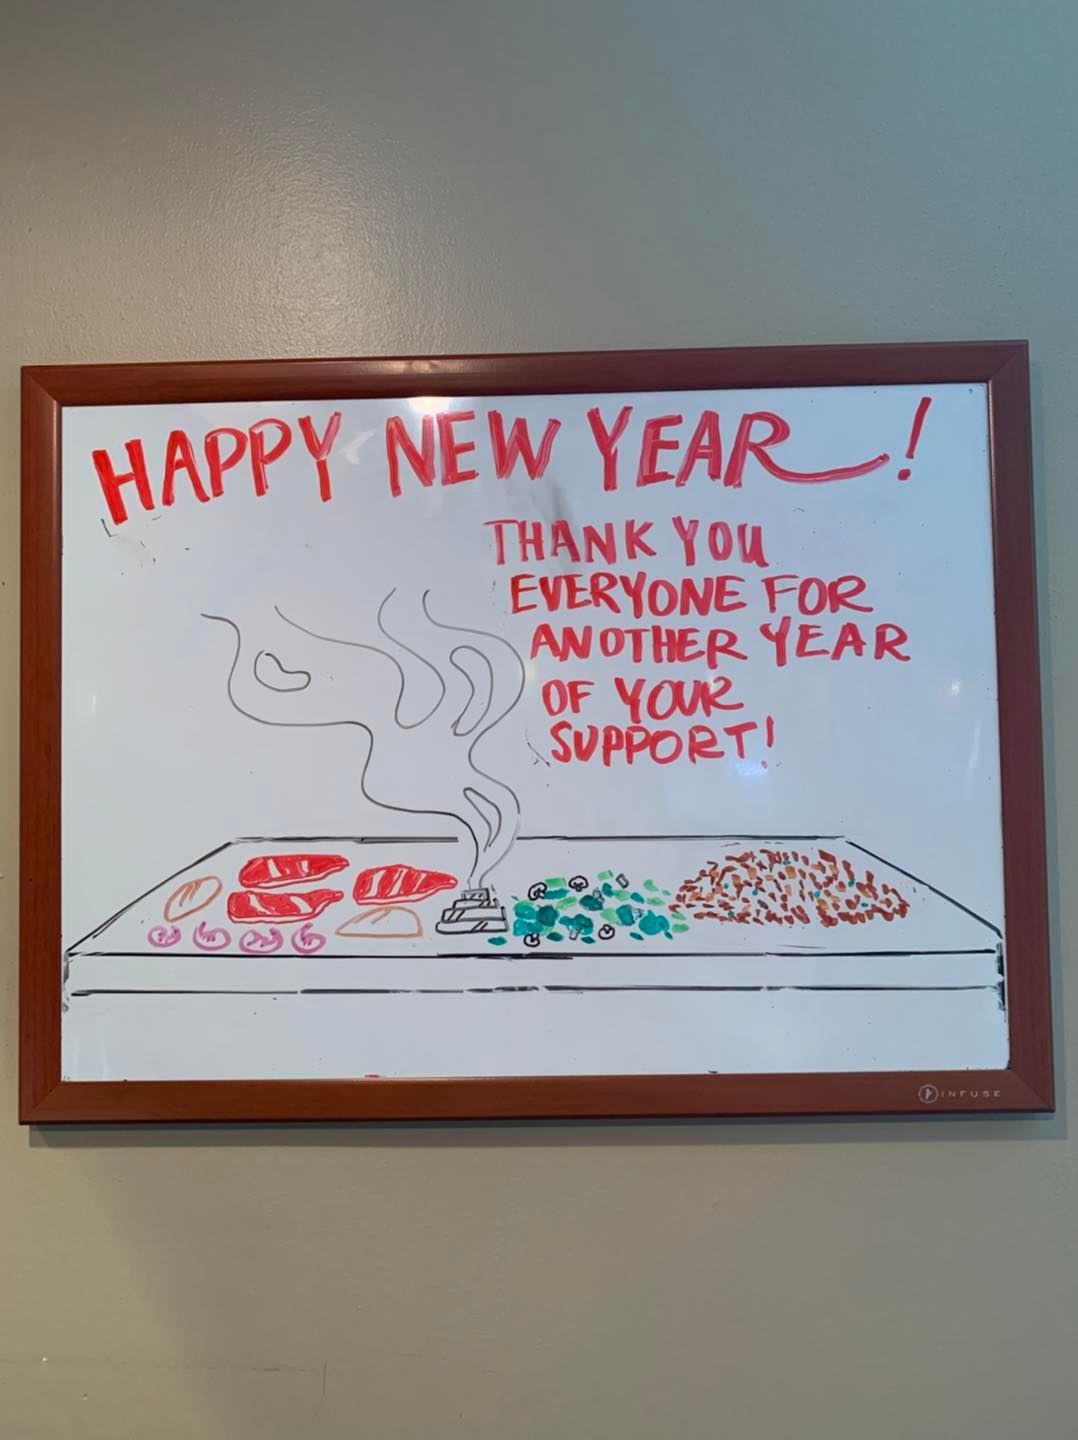 HAPPY NEW YEAR!
THANK YOU
EVERYONE FOR
ANOTHER YEAR
OF YOUR
SUPPORT!
INFUSE